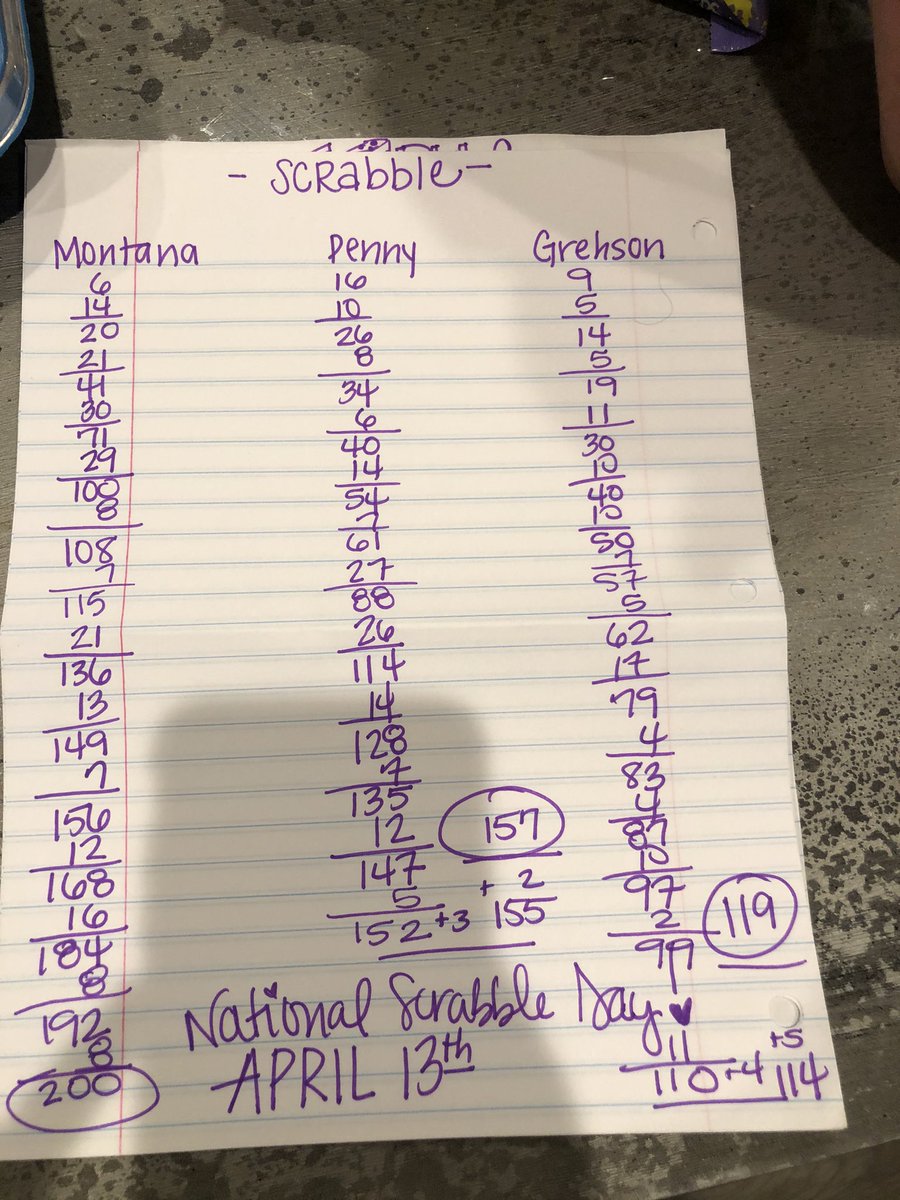 - SCRabble -
Montana Penny Grehson
6 16 9
14 10 5
20 26 14
21 8 5
41 34 19
30 6 11
71 40 30
29 14 10
100 54 40
8 7 10
108 61 50
7 27 7
115 88 57
21 26 5
136 114 62
13 14 17
149 128 79
7 7 4
156 135 83
12 12 157 4
168 147 + 2 87
16 5 155 10
184 152 +3 97
8 2 119
192 99
8 11 +5
200 110 +4 114
National Scrabble Day
APRIL 13th